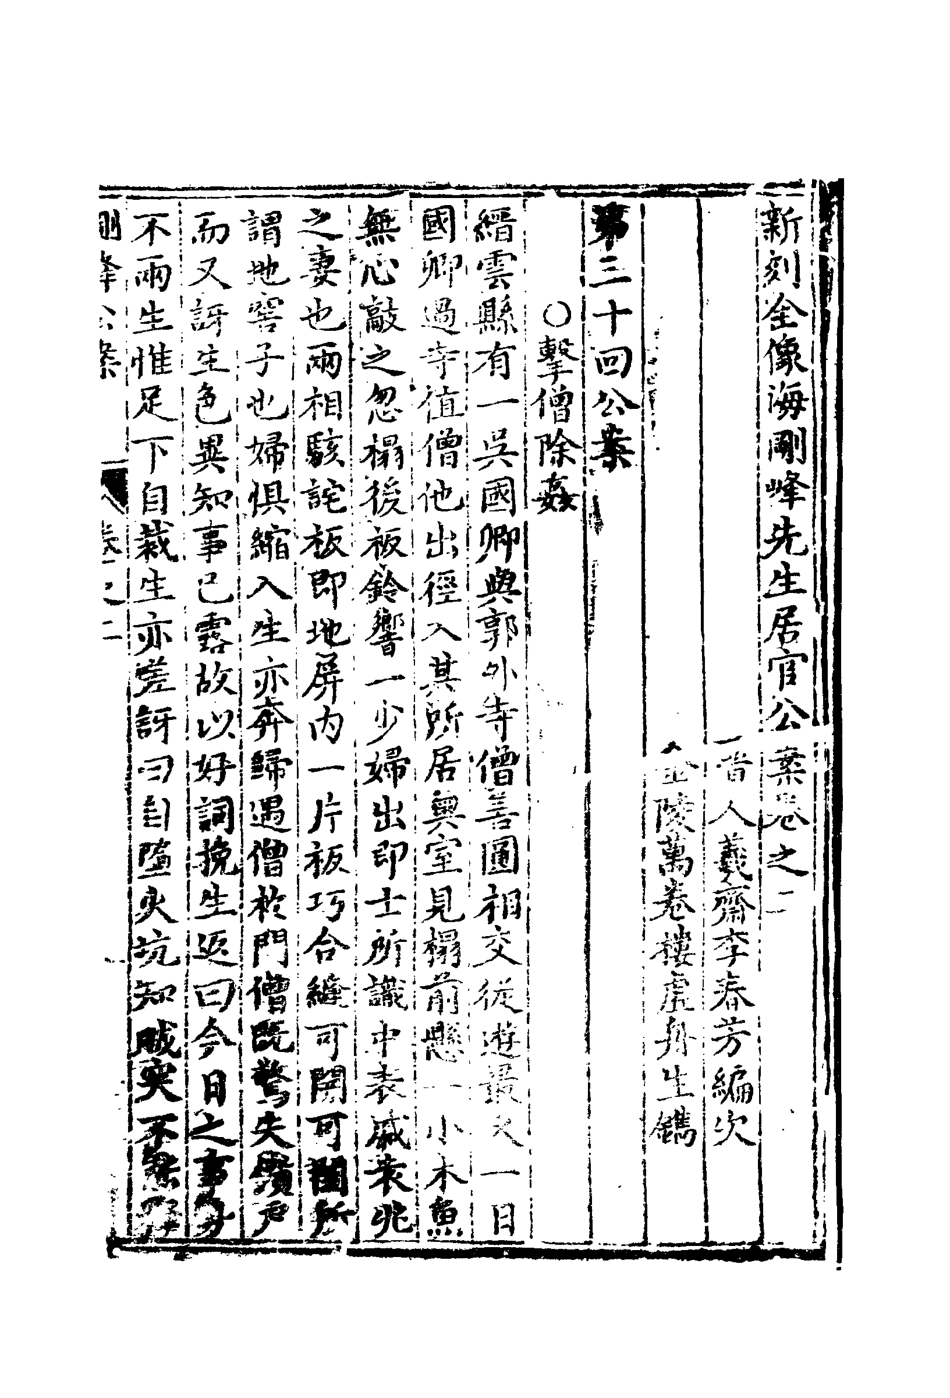 新刻全像海剛峰先生居官公案卷之二
晉人羲齋李春芳編次
金陵萬卷樓虛舟生鐫
第三十回公案
○擊僧除姦
縉雲縣有一吳國卿與郭外寺僧善圖相交從遊最久一日
國卿過寺值僧他出徑入其所居奧室見榻前懸一小木魚
無心敲之忽榻後板鈴響一少婦出即士所識中表戚裴兆
之妻也兩相駭詫板即地屏內一片板巧合縫可開可闔所
謂地窖子也婦俱縮入生亦奔歸遇僧於門僧既驚失鑰戶
而又訝生色異知事已露故以好詞挽生返曰今日之事勢
不兩生惟足下自裁生亦嗟訝曰自墮火坑知賊突不
剛峰公案 卷之二